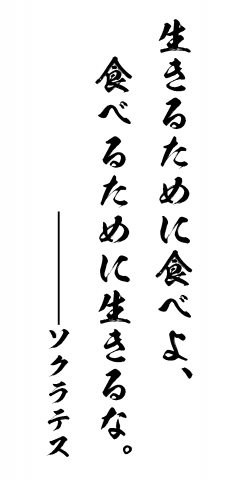 生きるために食べよ、
食べるために生きるな。
――ソクラテス